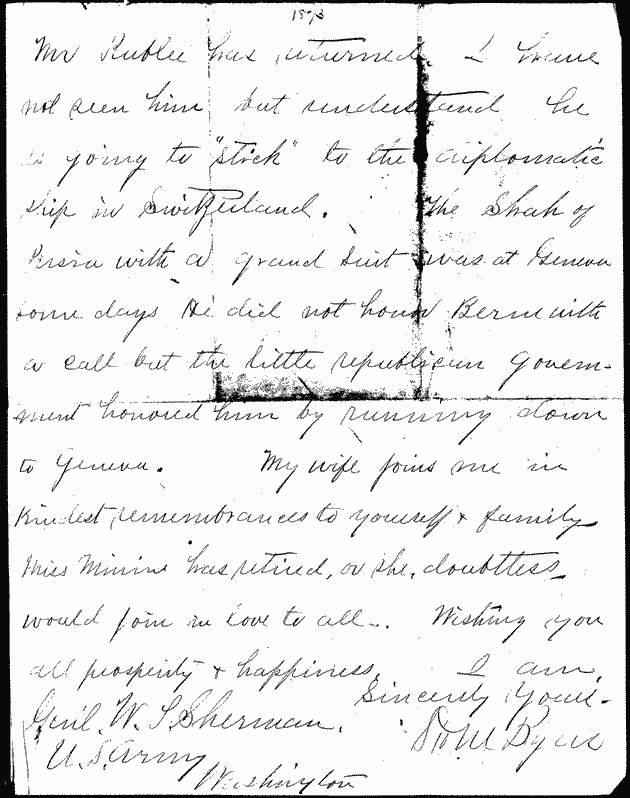 1873
Mr Rublee has returned. I have
not seen him, but understand he
is going to "stick" to the diplomatic
ship in Switzerland. The Shah of
Persia with a grand suit was at Geneva
some days He did not honor Bern with
a call but the little republican govern-
ment honored him by running down
to Geneva. My wife joins me in
kindest remembrances to yourself & family
Miss Minnie has retired, or she, doubtless
would join in love to all. Wishing you
all prosperity & happiness, I am,
Sincerely Yours.
Genl. W. T. Sherman. S H M Byers
U. S. Army
Washington